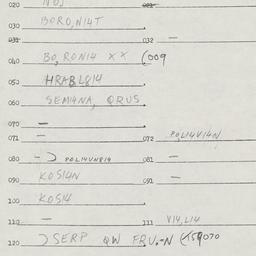 020 NOJ
030 BORO,NI4T
031 032 —
040 BO,RONI4 XX (009
050 HRABL8I4
060 SEMI4NA, QRUS
070 —
071 — 072 POLI4VI4N
080 — ) POLI4UN8I4 081 —
090 KOSI4N 091 —
100 KOSI4
110 — 111 VI4,LI4
120 ) SERP QW FRU.-N